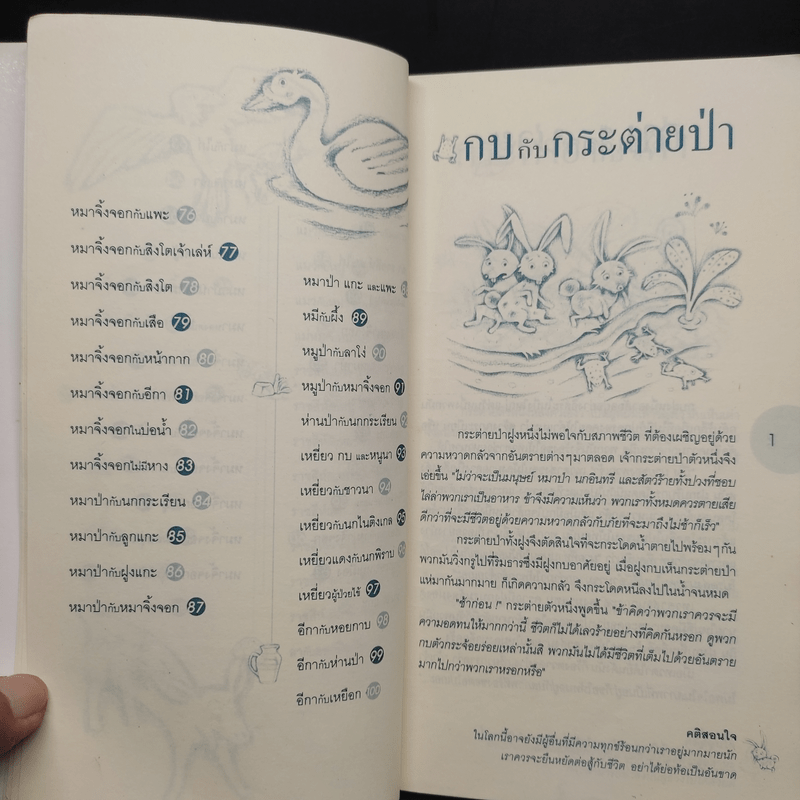 หมาจิ้งจอกกับแพะ 76
หมาจิ้งจอกกับสิงโตเจ้าเล่ห์ 77
หมาจิ้งจอกกับสิงโต 78
หมาจิ้งจอกกับเสือ 79
หมาจิ้งจอกกับหน้ากาก 80
หมาจิ้งจอกกับอีกา 81
หมาจิ้งจอกในบ่อน้ำ 82
หมาจิ้งจอกไม่มีหาง 83
หมาป่ากับนกกระเรียน 84
หมาป่ากับลูกแกะ 85
หมาป่ากับฝูงแกะ 86
หมาป่ากับหมาจิ้งจอก 87
หมาป่า แกะ และแพะ
หมีกับผึ้ง 89
หมูป่ากับลาโง่ 90
หมูป่ากับหมาจิ้งจอก 91
ห่านป่ากับนกกระเรียน 92
เหยี่ยว กบ และหนูนา 93
เหยี่ยวกับชาวนา 94
เหยี่ยวกับนกไนติงเกล 95
เหยี่ยวแดงกับนกพิราบ
เหยี่ยวผู้ป่วยไข้ 97
อีกากับหอยกาบ 98
อีกากับห่านป่า 99
อีกากับเหยือก 100
กบกับกระต่ายป่า
กระต่ายป่าฝูงหนึ่งไม่พอใจกับสภาพชีวิต ที่ต้องเผชิญอยู่ด้วย
ความหวาดกลัวจากอันตรายต่างๆมาตลอด เจ้ากระต่ายป่าตัวหนึ่งจึง
เอ่ยขึ้น "ไม่ว่าจะเป็นมนุษย์ หมาป่า นกอินทรี และสัตว์ร้ายทั้งปวงที่ชอบ
ไล่ล่าพวกเราเป็นอาหาร ข้าจึงมีความเห็นว่า พวกเราทั้งหมดควรตายเสีย
ดีกว่าที่จะมีชีวิตอยู่ด้วยความหวาดกลัวกับภัยที่จะมาถึงไม่ช้าก็เร็ว"
กระต่ายป่าทั้งฝูงจึงตัดสินใจที่จะกระโดดน้ำตายไปพร้อมๆกัน
พวกมันวิ่งกรูไปที่ริมธารซึ่งมีฝูงกบอาศัยอยู่ เมื่อฝูงกบเห็นกระต่ายป่า
แห่มากันมากมาย ก็เกิดความกลัว จึงกระโดดหนีลงไปในน้ำจนหมด
"ช้าก่อน !" กระต่ายตัวหนึ่งพูดขึ้น "ข้าคิดว่าพวกเราควรจะมี
ความอดทนให้มากกว่านี้ ชีวิตก็ไม่ได้เลวร้ายอย่างที่คิดกันหรอก ดูพวก
กบตัวกระจ้อยร่อยเหล่านั้นสิ พวกมันไม่ได้มีชีวิตที่เต็มไปด้วยอันตราย
มากไปกว่าพวกเราหรอกหรือ"
1
คติสอนใจ
ในโลกนี้อาจยังมีผู้อื่นที่มีความทุกข์ร้อนกว่าเราอยู่มากมายนัก
เราควรจะยืนหยัดต่อสู้กับชีวิต อย่าได้ย่อท้อเป็นอันขาด